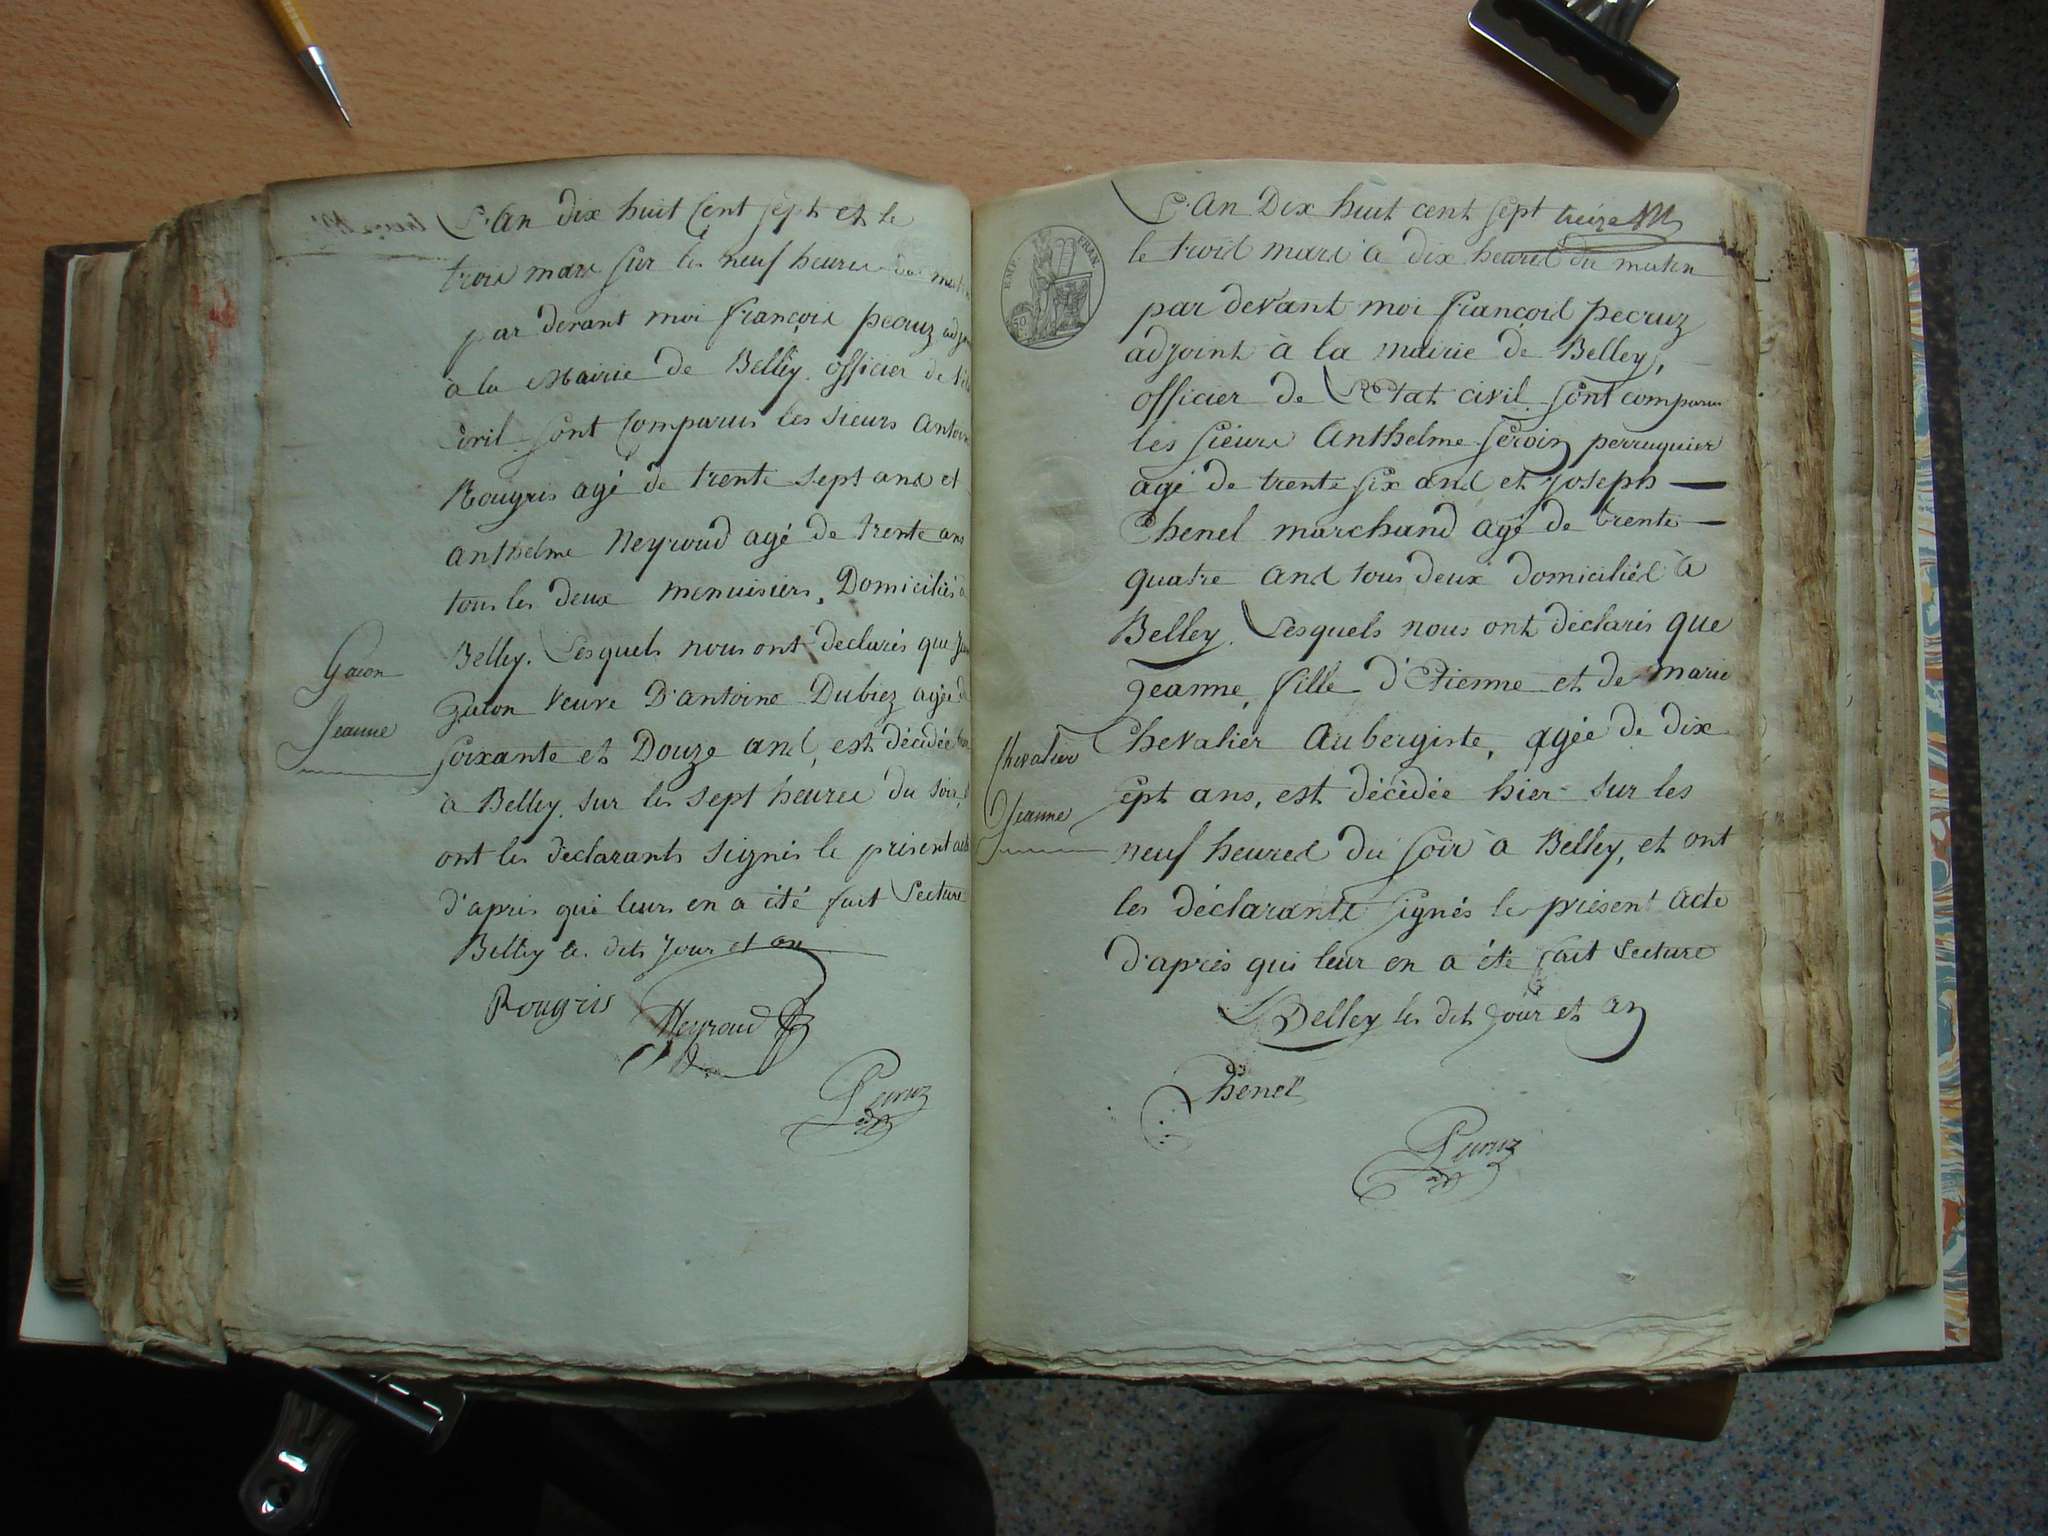 L'An dix huit Cent sept et le
trois mars sur les neuf heures du
par devant moi françois pecruz adj
à la Mairie de Belley officier de l'
civil sont Comparus les sieurs Antoin
Rougris agé de trente sept ans et
anthelme Neyroud agé de trente ans
tous les deux menuisiers, Domiciliés à
Belley. Lesquels nous ont déclarés que
Gacon
Jeanne
gacon Veuve D'antoine Dubiez agée
soixante et Douze ans, est décédée
à Belley sur les sept heures du soir,
ont les déclarants signés le présent
d'apris qui leurs en a été fait Lecture
Belley les dits jour et an
Rougris Neyroud
Pecruz
L'An Dix huit cent sept treize
EMP. FRAN.
le trois mars à dix heures du matin
par devant moi françois pecruz
adjoint à la mairie de Belley,
officier de L'Etat civil sont comparus
les sieurs Anthelme perruquier
agé de trente six ans et Joseph
Chenel marchand agé de trente
quatre ans tous deux domiciliés à
Belley. Lesquels nous ont déclarés que
Jeanne, fille d'Etienne et de marie
Chevalier
Jeanne
Chevalier Aubergiste, agée de dix
sept ans, est décédée hier sur les
neuf heures du soir à Belley, et ont
les déclarants signés le présent Acte
d'après qui leur en a été fait Lecture
à Belley les dit jour et an
Chenel
Pecruz